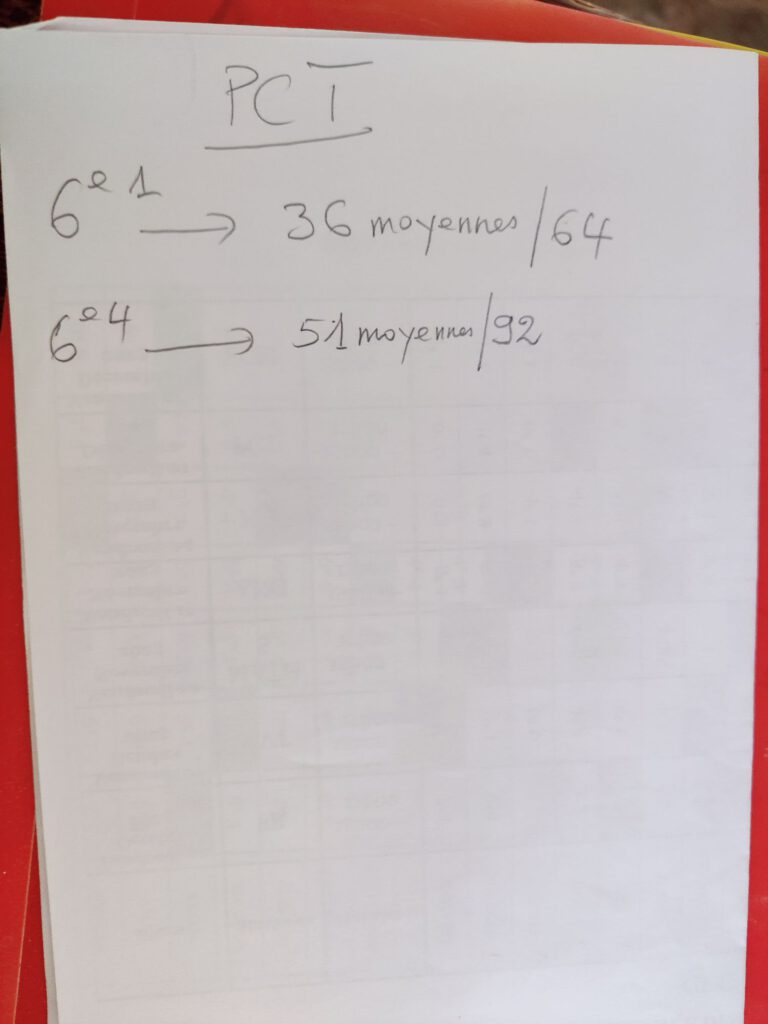 PCT
6e1 → 36 moyennes/64
6e4 → 51 moyennes/92